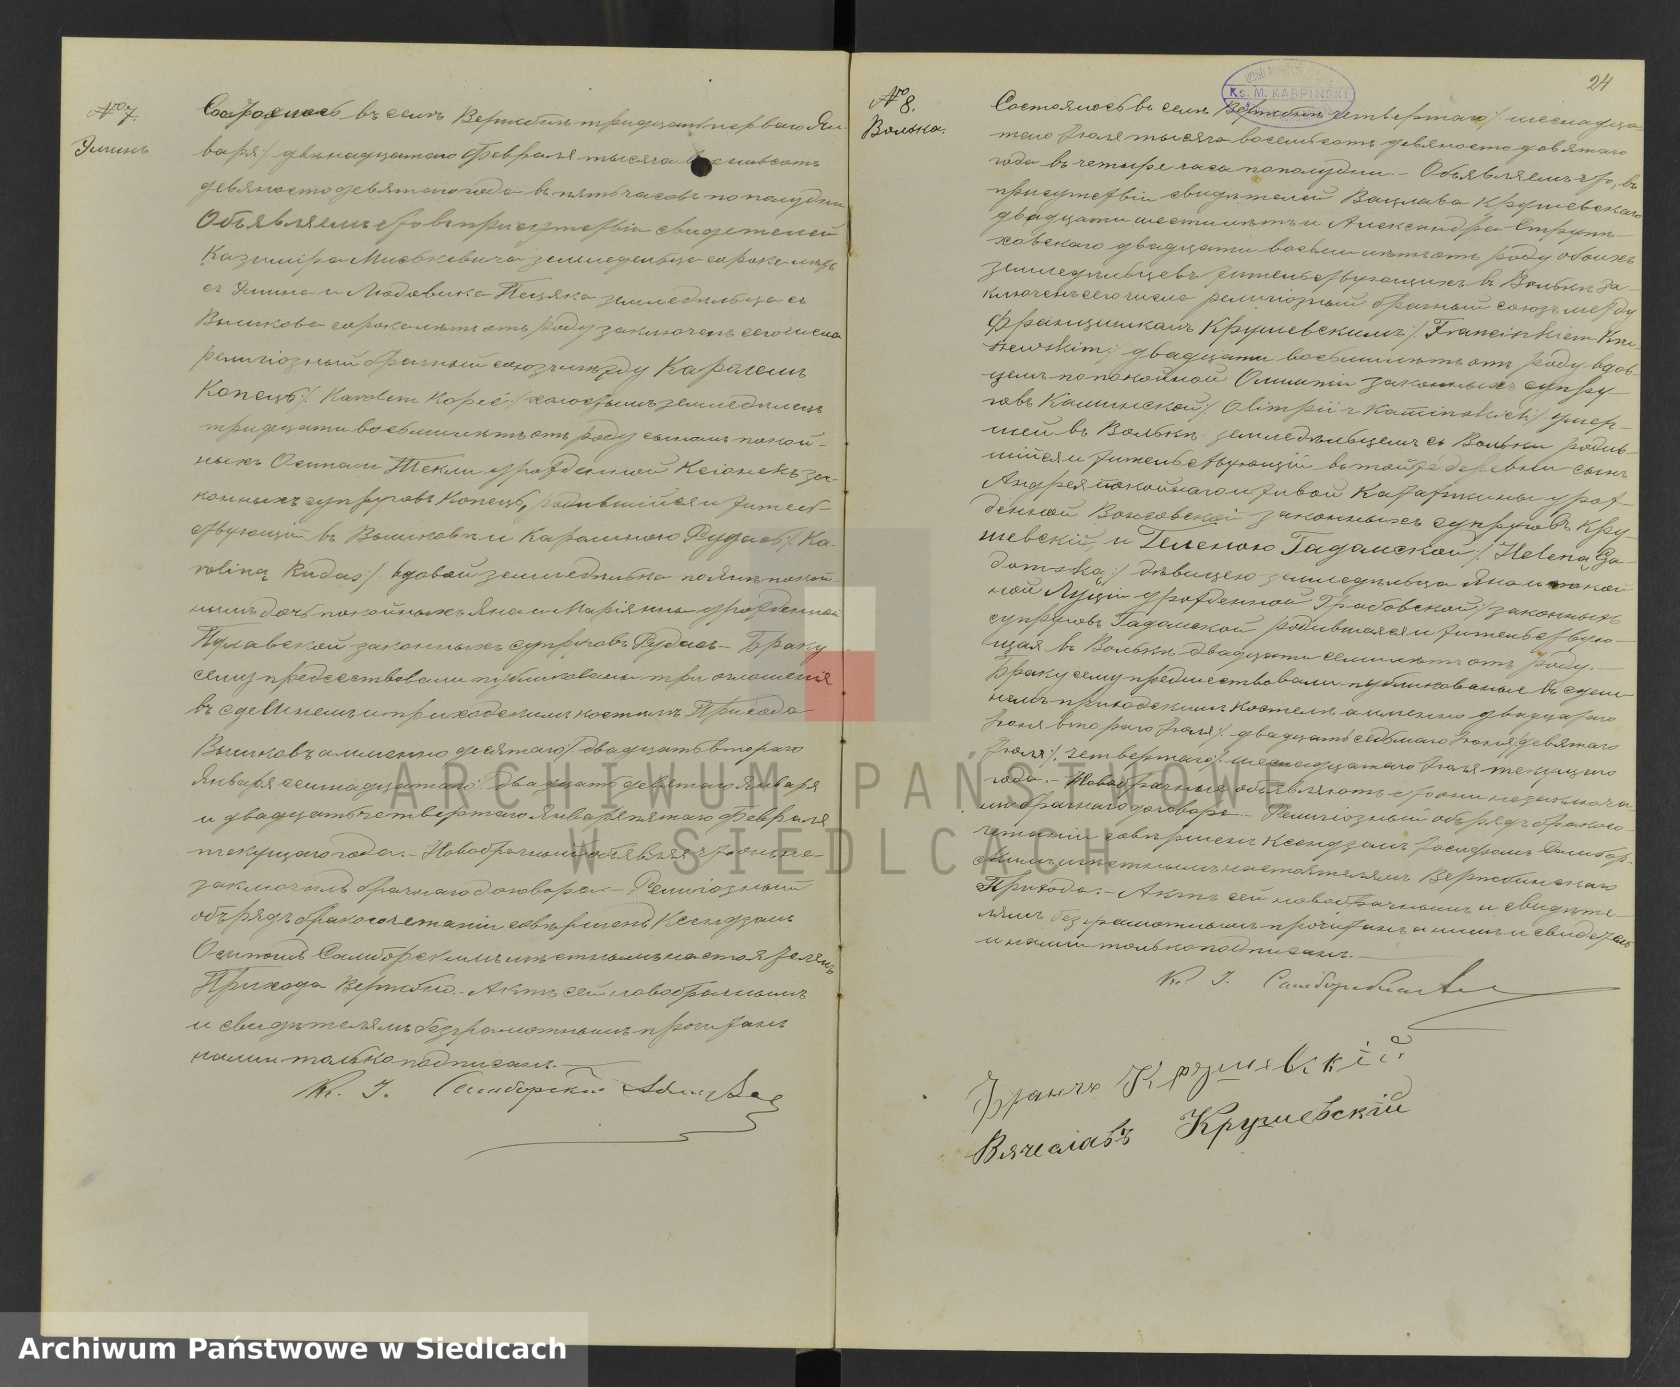 № 7.
Улинъ
Состоялось въ селѣ Вержбнѣ тридцать перваго Ян-
варя /: двѣнадцатаго Февраля тысяча восемьсотъ
девяносто девятаго года въ пять часовъ по полудни
Объявляемъ что въ присутствіи свидѣтелей
Казиміра Миськевича земледельца сорока лѣтъ
съ Улина и Людовика Пецяка земледѣльца съ
Вышкова сорока лѣтъ отъ роду заключенъ сего числа
религіозный брачный союзъ между Каролемъ
Копецъ /: Karolem Kopeć :/ холостымъ земледѣлецъ
тридцати восьми лѣтъ отъ роду сыномъ покой-
ныхъ Осипа и Текли урожденной Ксіонекъ за-
конныхъ супруговъ Копецъ, родившійся и житель-
ствующій въ Вышковѣ и Каролиною Рудась /: Ka-
roliną Rudaś :/ вдовой земледѣлька по Янѣ покой-
нымъ дочь покойныхъ Яна и Маріянны урожденной
Пулавской законныхъ супруговъ Рудась – Браку
сему предсествовали публикованы три оглошенія
въ сдешнемъ и приходскимъ костелѣ Прихода
Вышковъ а именно десятаго /: двадцать втораго
Января семнадцатаго /: двадцать девятаго Января
и двадцать четвертаго Января пятаго Февраля
текущаго года. – Новобрачныи объявляя что они не
заключилъ брачнаго договора – Религіозный
обрядъ бракосочетанія совѣршенъ Ксендзомъ
Осипомъ Самборскимъ мѣстнымъ настоятелямъ
Прихода Вержбно. – Актъ сей новобрачнымъ
и свидѣтелямъ безграмотнымъ прочитанъ
нами только подписанъ. –
Кс. I. Самборскій
ARCHIWUM PAŃSTWOWE
W SIEDLCACH
24
Ks. M. KARPIŃSKI
№ 8.
Волька.
Состоялось въ селѣ Вержбнѣ четвертаго /: шеснадца-
таго Іюля тысяча восемьсотъ девяносто девятаго
года въ четыре часа по полудни. – Объявляемъ что, въ
присутствіи свидѣтелей Вацлава Крушевскаго
двадцати шести лѣтъ и Александра Струпѣ-
ховскаго двадцати восьми лѣтъ отъ роду обоихъ
земледѣльцевъ жительствующихъ въ Волькѣ за-
ключенъ сего числа религіозный брачный союзъ между
Францишкомъ Крушевскимъ /: Francinkiem Kru-
szewskim :/ двадцати восьми лѣтъ отъ роду вдов-
цемъ по покойной Олимпіи законныхъ супру-
говъ Каминской /: Olimpii z Kamińskich :/ умер-
шей въ Волькѣ земледѣльцемъ съ Вольки родив-
шійся и жительствующій въ той же деревни сынъ
Андрея покойнаго и живой Катаржины урож-
денной Вонсовской законныхъ супруговъ Кру-
шевскій, и Геленою Гадомской /: Heleną Ga-
domską :/ дѣвицею земледѣльца Яна и покой-
ной Луціи урожденной Грабовской /: законныхъ
супруговъ Гадомской родившаяся и жительствую-
щая въ Волькѣ двадцати семи лѣтъ отъ роду. –
Браку сему предшествовали публикованые въ сдеш-
немъ приходскимъ Костелѣ а именно двадцатаго
Іюня втораго Іюля /: двадцать седьмаго Іюня девятаго
Іюля /: четвертаго /: шеснадцатаго Іюля текущаго
года. – Новобрачные объявляютъ что они не заключа-
ли брачнаго договора. – Религіозный обрядъ бракосо-
четанія совѣршенъ Ксендзомъ Іосифомъ Самбор-
скимъ мѣстнымъ настоятелямъ Вержбинскаго
Прихода. – Актъ сей новобрачнымъ и свидѣте-
лямъ безграмотнымъ прочитанъ а нимъ и свидетель
и нами только подписанъ. –
Кс. I. Самборскій
Франчъ Крушевскій
Вячеславъ Крушевскій
Archiwum Państwowe w Siedlcach